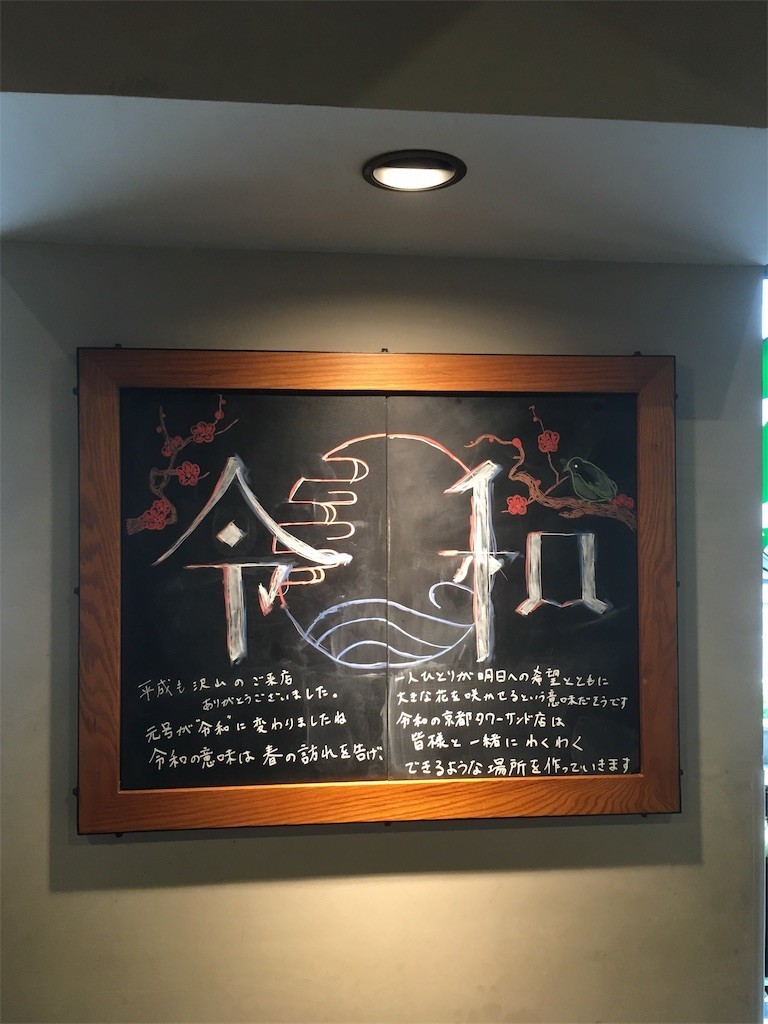 令和
平成も沢山のご来店
ありがとうございました。
元号が"令和"に変わりましたね
令和の意味は春の訪れを告げ、
一人ひとりが明日への希望とともに
大きな花を咲かせるという意味だそうです
令和の京都タワーサンド店は
皆様と一緒にわくわく
できるような場所を作っていきます